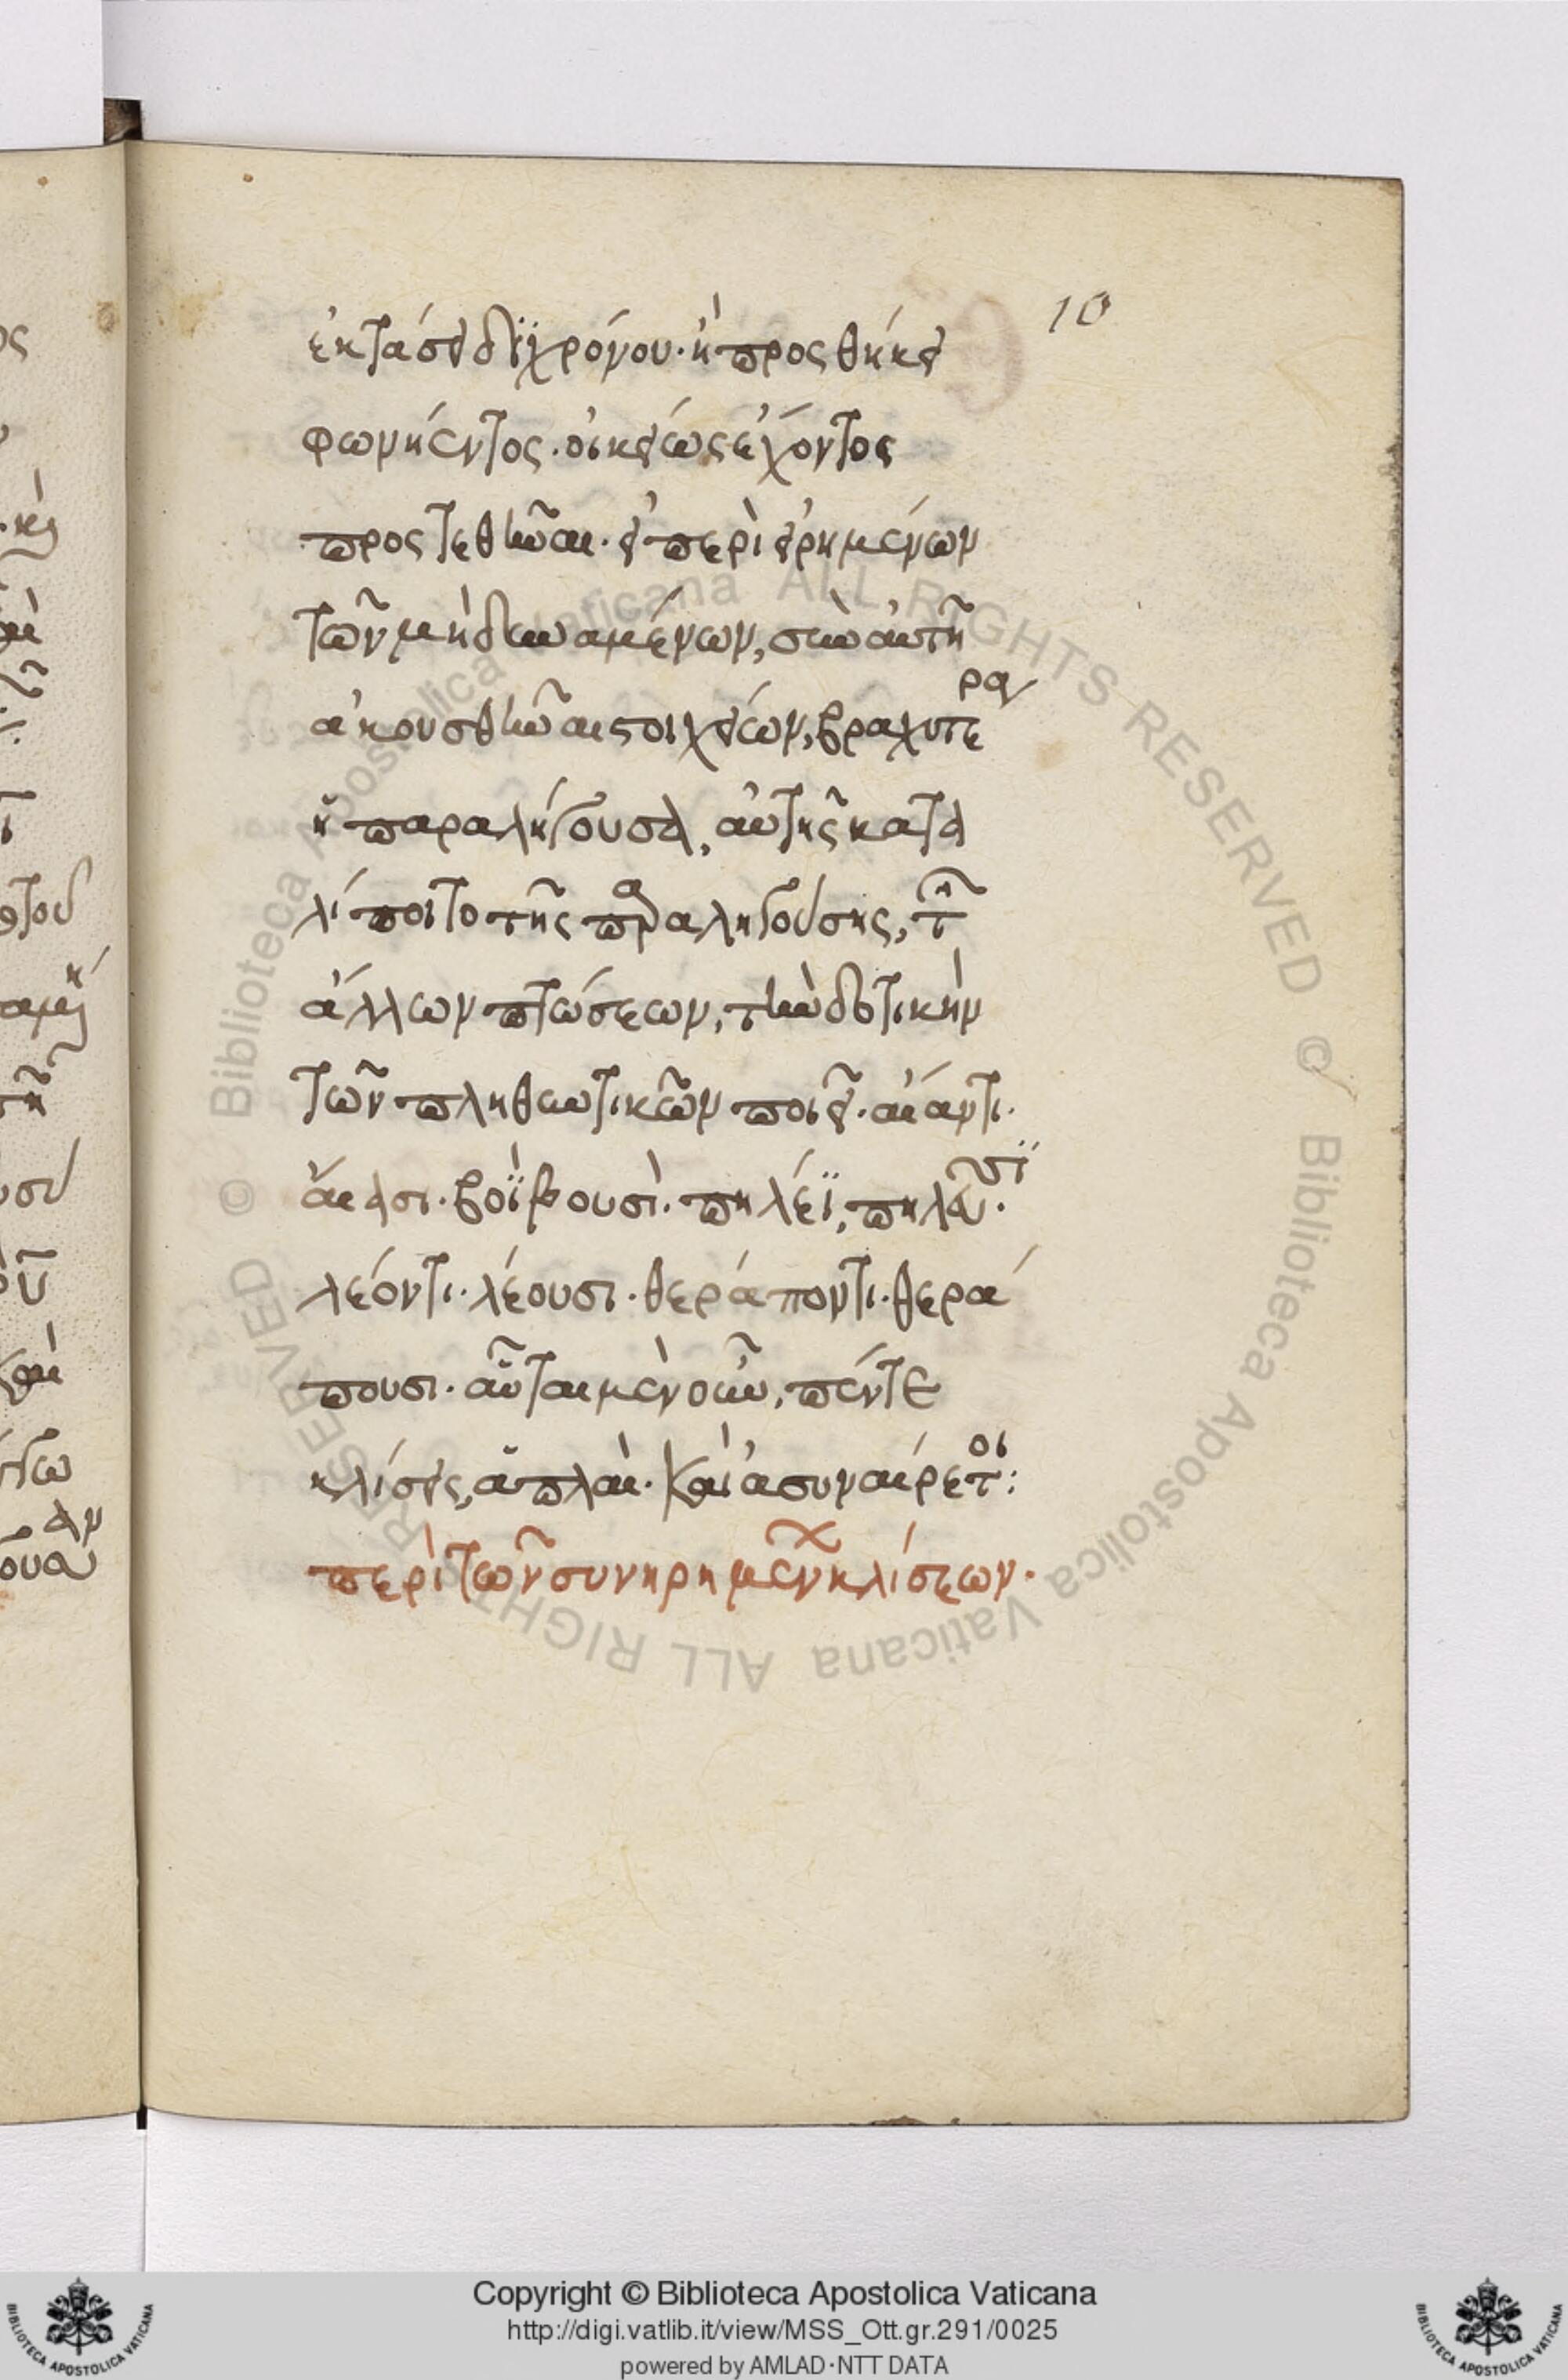 10
ἐκτάσει διχρόνου· ἢ προσθήκει
φωνήεντος· οἰκείως ἔχοντος
προστεθῆναι· εἰ περιειρημένων
τῶν μὴ δυναμένων, σὺν αὐτῆ
ἀκουσθῆναι στοιχείων, βραχυτέρα
ἢ παραλήγουσα, αὐτῆς κατα
λίποιτο τῆς παραληγούσης, τῶν
ἄλλων πτώσεων, τὴν δοτικὴν
τῶν πληθυντικῶν ποιεῖ· αἴαντι·
ἄιασι· βοῒ βουσὶ· πηλέϊ, πηλεῦσϊ·
λέοντι· λέουσι· θεράποντι· θερά
πουσι· αὗται μὲν οὖν, πέντε
κλίσεις, ἁπλαῖ· καὶ ἀσυναίρετοι:
περὶ τῶν συνηρημένων κλίσεων·
Copyright © Biblioteca Apostolica Vaticana
http://digi.vatlib.it/view/MSS_Ott.gr.291/0025
powered by AMLAD·NTT DATA
© Biblioteca Apostolica Vaticana ALL RIGHTS RESERVED © Biblioteca Apostolica Vaticana ALL RIGHTS RESERVED
BIBLIOTECA APOSTOLICA VATICANA
BIBLIOTECA APOSTOLICA VATICANA